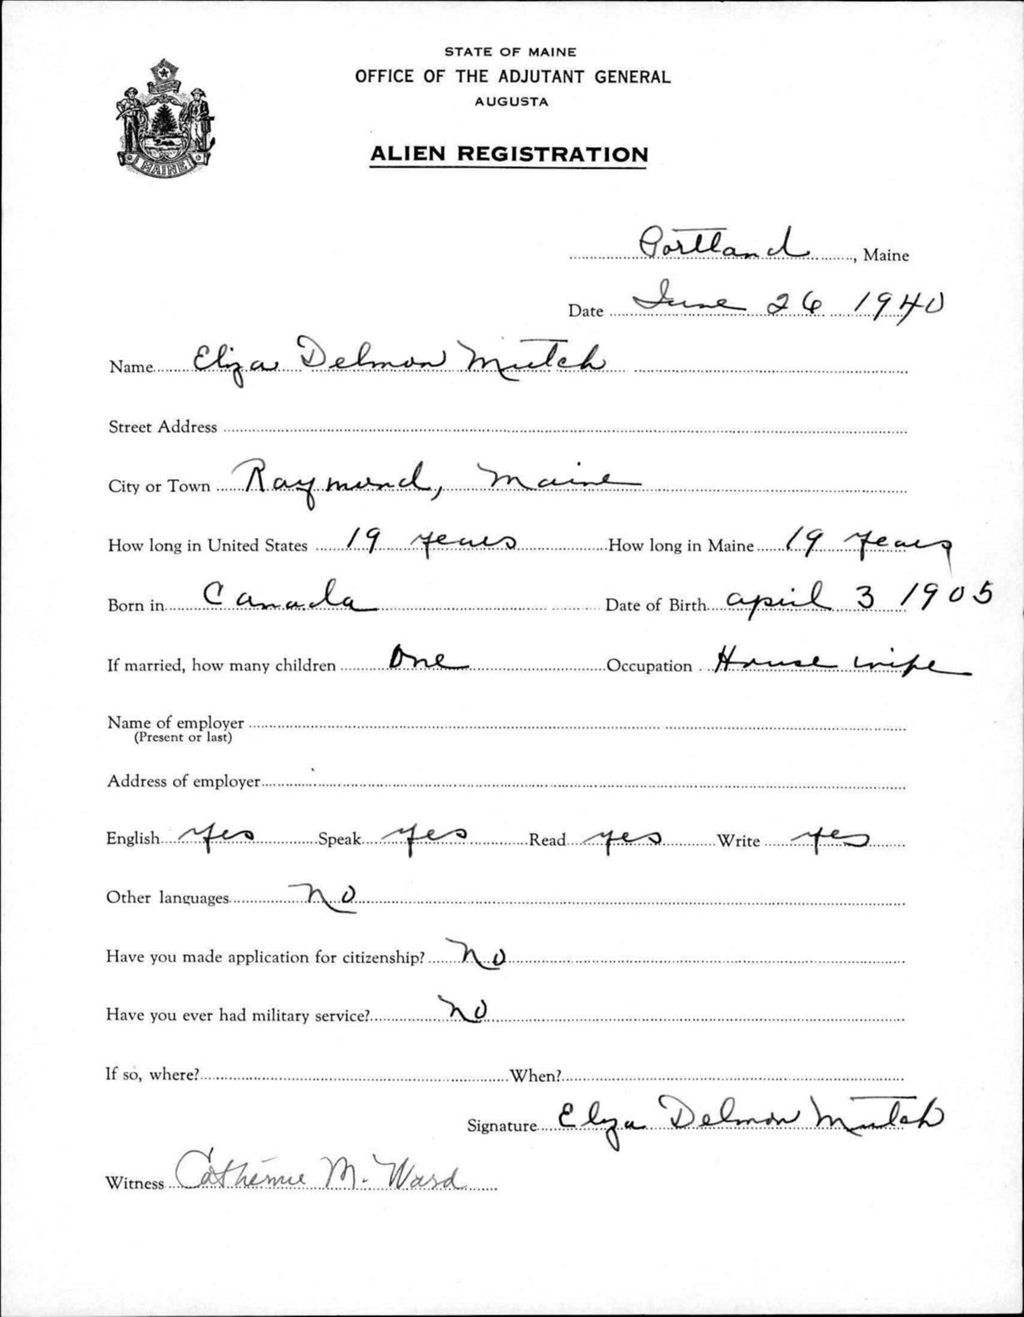 STATE OF MAINE
OFFICE OF THE ADJUTANT GENERAL
AUGUSTA
ALIEN REGISTRATION
MAINE
Portland, Maine
Date June 26 1940
Name Eliza Delmon Mutch
Street Address
City or Town Raymond, Maine
How long in United States 19 years How long in Maine 19 years
Born in Canada Date of Birth april 3 1905
If married, how many children One Occupation House wife
Name of employer
(Present or last)
Address of employer
English yes Speak yes Read yes Write yes
Other languages No
Have you made application for citizenship? No
Have you ever had military service? No
If so, where? When?
Signature Eliza Delmon Mutch
Witness Catherine M. Ward